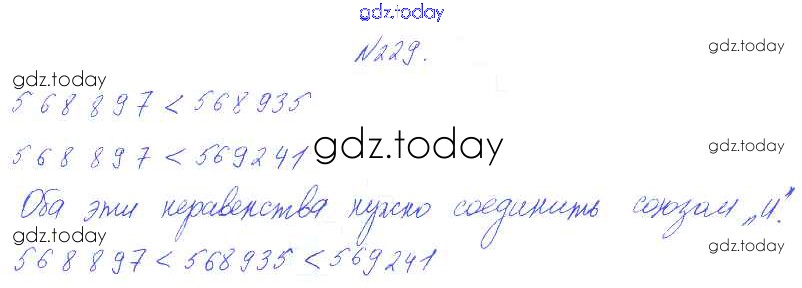 gdz.today
№229.
gdz.today
gdz.today
568 897 < 568 935
568 897 < 569 241
gdz.today
gdz.today
Оба эти неравенства нужно соединить союзом „и".
gdz.today
gdz.today
568 897 < 568 935 < 569 241